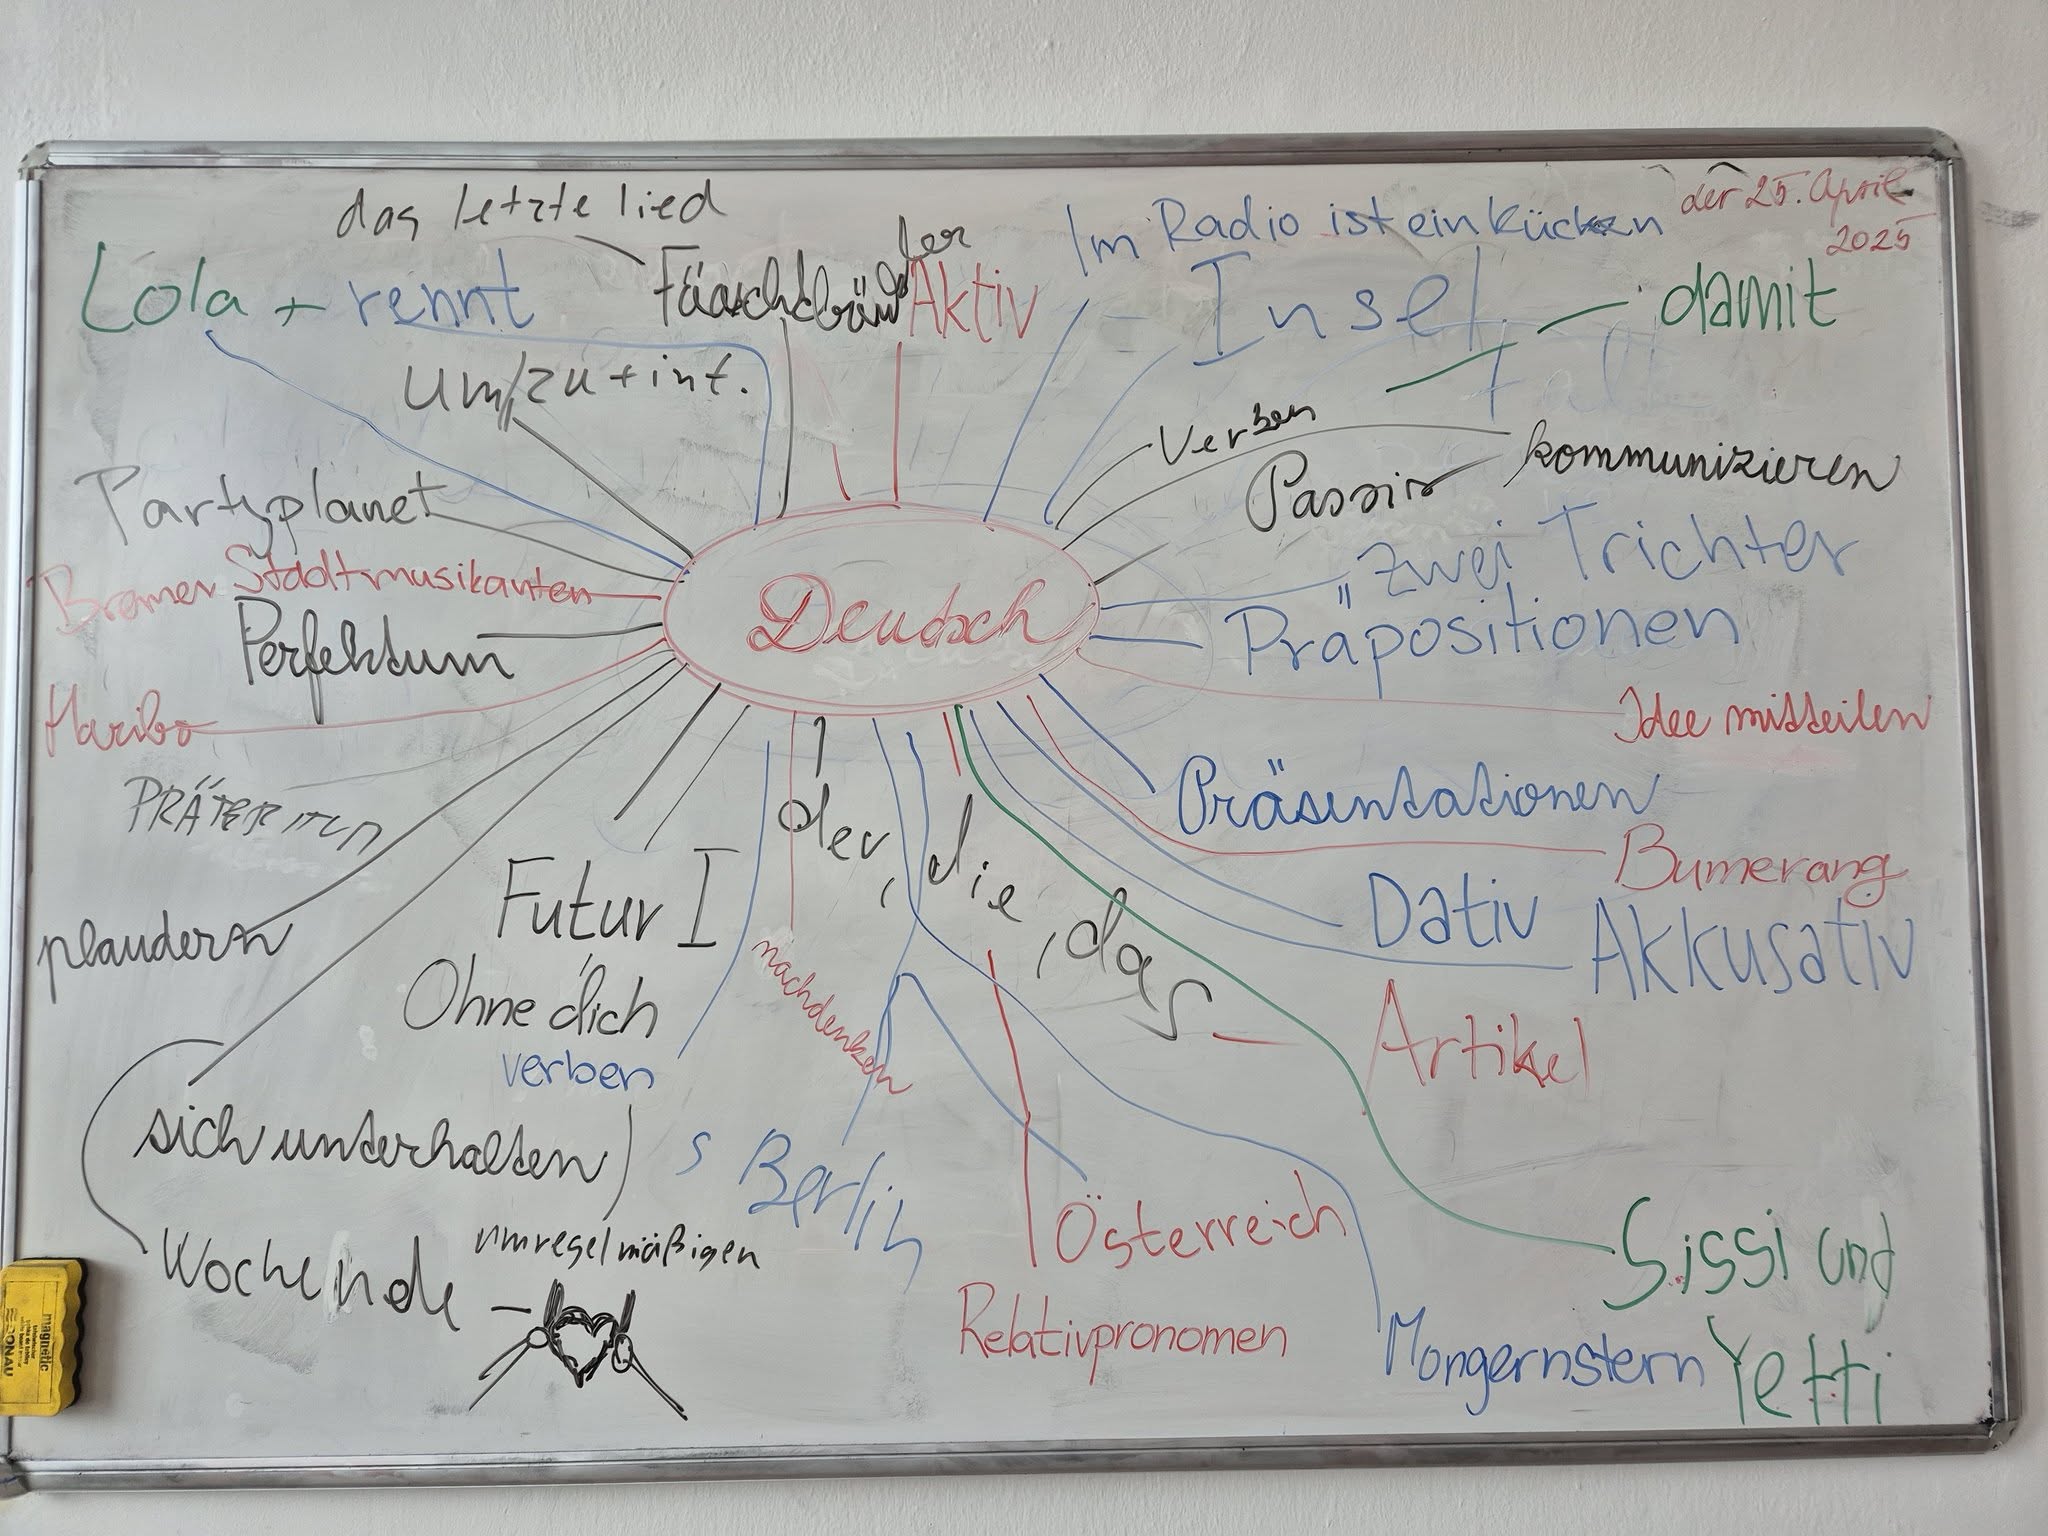 das letzte lied
der 25. April
2025
Im Radio ist ein kücken
Lola + rennt
der
Aktiv
Insel
damit
um/zu + inf.
Verben
Passiv
kommunizieren
Partyplanet
Zwei Trichter
Bremer Stadtmusikanten
Deutsch
Präpositionen
Perfektum
Haribo
Idee mitteilen
PRÄTERITUM
Präsentationen
der, die, das
Bumerang
Futur I
Dativ
Akkusativ
plaudern
nachdenken
Ohne dich
Artikel
verben
sich unterhalten
s Berlin
Österreich
Wochenende
unregelmäßigen
Sissi und
Yetti
Relativpronomen
Mongernstern
magnetic
DONAU